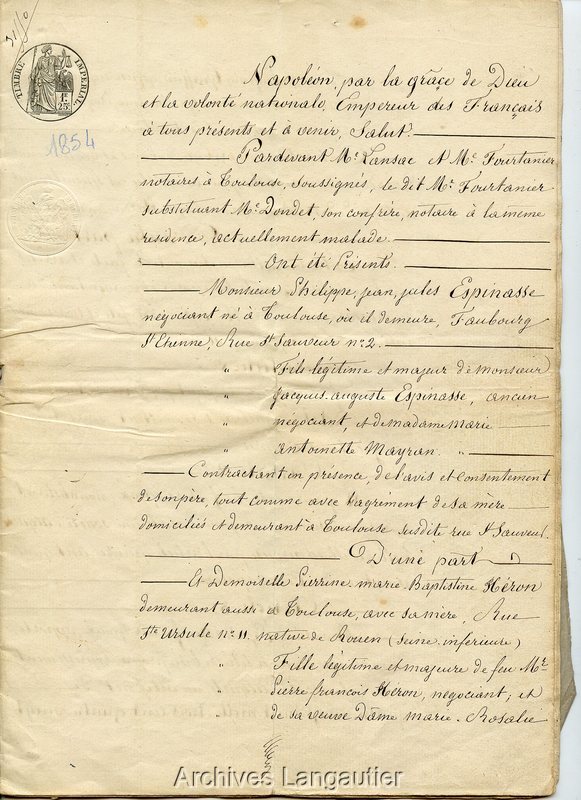 TIMBRE IMPERIAL
1F
25c
1854
Napoléon, par la grâce de Dieu
et la volonté nationale, Empereur des Français
à tous présents et à venir, Salut.
Pardevant Me. Lansac et Me. Fourtanier
notaires à Toulouse, soussignés, le dit Me. Fourtanier
substituant Me. Doudet, son confrère, notaire à la même
residence, actuellement malade.
Ont été Présents.
Monsieur Philippe, jean, jules Espinasse
négociant né à Toulouse, où il demeure, Faubourg
St. Etienne, Rue St. Sauveur no. 2.
" Fils légitime et majeur de Monsieur
" Jacques-auguste Espinasse, ancien
" négociant, et de madame Marie
" Antoinette Mayran. "
Contractant en présence, de l'avis et consentement
de son père, tout comme avec l'agrément de sa mère
domiciliés et demeurant à Toulouse susdite rue St. Sauveur.
D'une part
Et Demoiselle Pierrine-marie-Baptistine Héron
demeurant aussi à Toulouse, avec sa mère, Rue
Ste. Ursule no. 11. native de Rouen (seine inférieure)
" Fille légitime et majeure de feu Mr.
Pierre françois Héron, négociant, et
de sa veuve Dâme marie-Rosalie
Archives Langautier